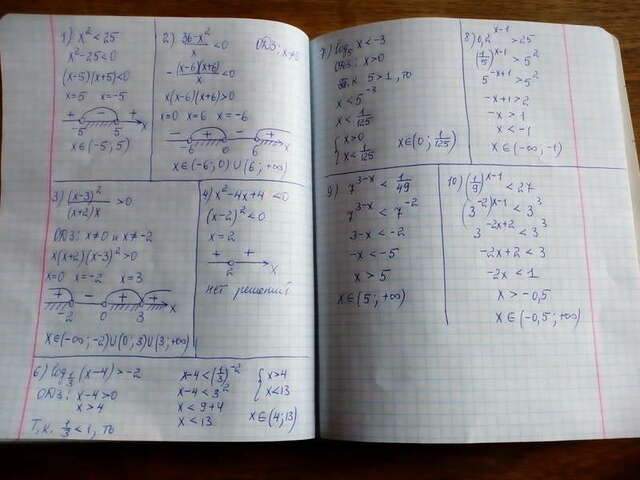 1) x² < 25
x² - 25 < 0
(x-5)(x+5) < 0
x=5 x=-5
+ - +
-5 5 x
x ∈ (-5; 5)
2) (36-x²)/x < 0 ОДЗ: x≠0
- (x-6)(x+6)/x < 0
x(x-6)(x+6) > 0
x=0 x=6 x=-6
- + - +
6 0 6
x ∈ (-6; 0) ∪ (6; +∞)
3) (x-3)²/((x+2)x) > 0
ОДЗ: x≠0 и x≠-2
x(x+2)(x-3)² > 0
x=0 x=-2 x=3
+ - + +
-2 0 3 x
x ∈ (-∞; -2) ∪ (0; 3) ∪ (3; +∞)
4) x² - 4x + 4 < 0
(x-2)² < 0
x = 2
+ +
2 x
нет решений
6) log 1/3 (x-4) > -2
ОДЗ: x-4 > 0
x > 4
Т.к. 1/3 < 1, то
x-4 < (1/3)⁻²
x-4 < 3²
x < 9+4
x < 13
{ x > 4
x < 13
x ∈ (4; 13)
7) log₅ x < -3
ОДЗ: x > 0
т.к 5 > 1, то
x < 5⁻³
x < 1/125
{ x > 0
x < 1/125
x ∈ (0; 1/125)
8) 0,2ˣ⁻¹ > 25
(1/5)ˣ⁻¹ > 5²
5⁻ˣ⁺¹ > 5²
-x+1 > 2
-x > 1
x < -1
x ∈ (-∞, -1)
9) 7³⁻ˣ < 1/49
7³⁻ˣ < 7⁻²
3-x < -2
-x < -5
x > 5
x ∈ (5; +∞)
10) (1/9)ˣ⁻¹ < 27
(3⁻²)ˣ⁻¹ < 3³
3⁻²ˣ⁺² < 3³
-2x+2 < 3
-2x < 1
x > -0,5
x ∈ (-0,5; +∞)